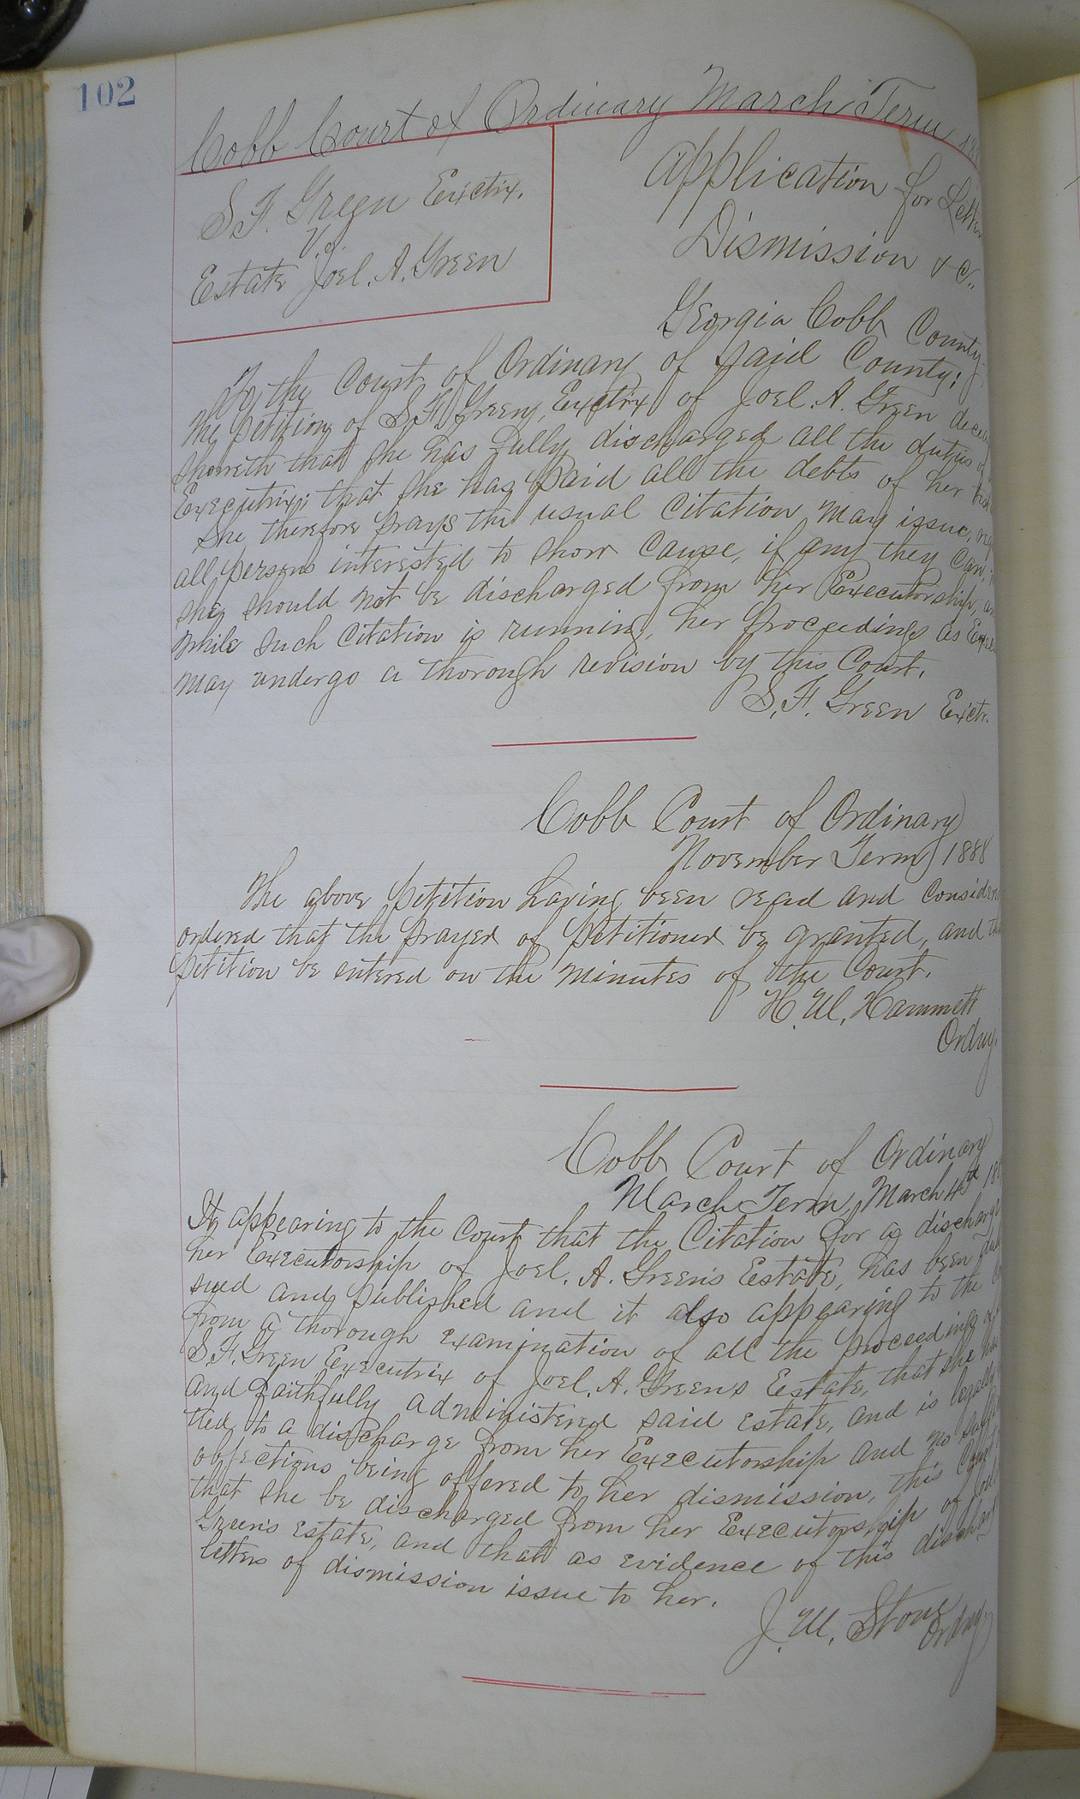 102
Cobb Court of Ordinary March Term
S. F. Green Exectrix.
Vs.
Estate Joel. A. Green
Application for Letters
Dismission &c.,
Georgia Cobb County
To the Court of Ordinary of said County;
The petition of S. F. Green, Exectrix of Joel. A. Green
sheweth that she has fully discharged all the duties
Executrix; that she has paid all the debts of her
She therefore prays the usual Citation may issue,
all persons interested to show cause, if any they can,
she should not be discharged from her Executorship,
while such Citation is running, her proceedings as
may undergo a thorough revision by this Court.
S. F. Green Exctr.
Cobb Court of Ordinary
November Term 1888
The above petition having been read and
ordered that the prayer of petitioner be granted, and
petition be entered on the minutes of the Court.
H. M. Hammett
Ordny.
Cobb Court of Ordinary
March Term, March 4th
It appearing to the Court that the Citation for a
her Executorship of Joel. A. Green's Estate, has been
sued and published and it also appearing to the
from a thorough examination of all the proceedings
S. F. Green Executrix of Joel. A. Green's Estate, that she
and faithfully administered said estate, and is legally
tled to a discharge from her Executorship and no
objections being offered to her dismission, this
that she be discharged from her Executorship of
Green's Estate, and that as evidence of this
letters of dismission issue to her.
J. M. Stone
Ordny